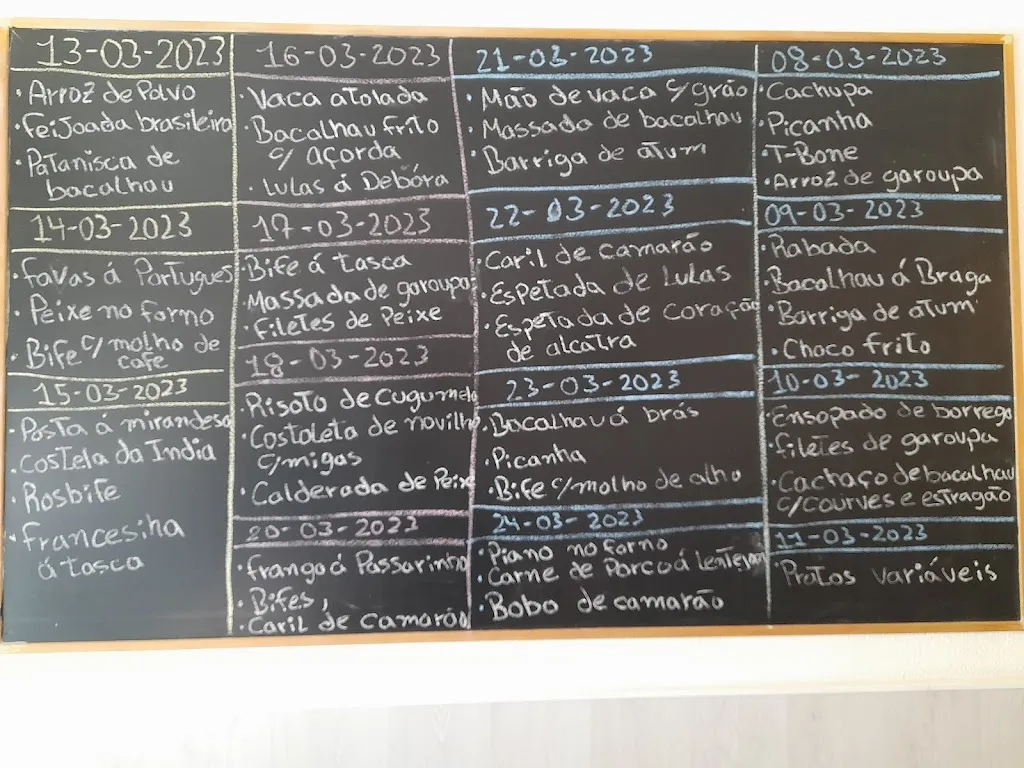 13-03-2023
• Arroz de Polvo
• Feijoada brasileira
• Patanisca de
bacalhau
14-03-2023
• Favas á Portugues
• Peixe no forno
• Bife c/ molho de
cafe
15-03-2023
• Posta á mirandesa
• Costela da India
• Rosbife
• Francesinha
á tasca
16-03-2023
• Vaca atolada
• Bacalhau frito
c/ açorda
• Lulas á Debóra
17-03-2023
• Bife á tasca
• Massada de garoupa
• Filetes de Peixe
18-03-2023
• Risoto de cugumelo
• Costoleta de novilho
c/migas
• Calderada de Peixe
20-03-2023
• frango á Passarinho
• Bifes,
• Caril de camarão
21-03-2023
• Mão de vaca c/ grão
• Massada de bacalhau
• Barriga de atum
22-03-2023
• Caril de camarão
• Espetada de Lulas
• Espetada de coração
de alcatra
23-03-2023
• Bacalhau á brás
• Picanha
• Bife c/molho de alho
24-03-2023
• Piano no forno
• Carne de Porco á lentejan
• Bobo de camarão
08-03-2023
• Cachupa
• Picanha
• T-Bone
• Arroz de garoupa
09-03-2023
• Rabada
• Bacalhau á Braga
• Barriga de atum
• Choco frito
10-03-2023
• Ensopado de borrego
• filetes de garoupa
• Cachaço de bacalhau
c/Courves e estragão
11-03-2023
• Pratos variáveis